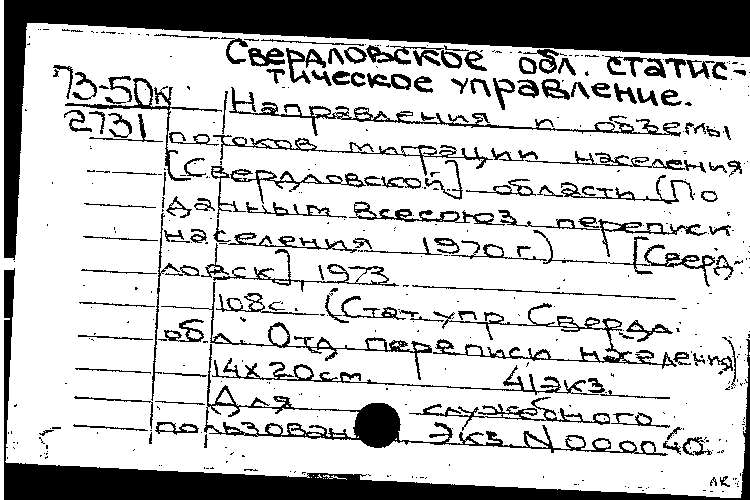 Свердловское обл. статис-
тическое управление.
73-50к
2731
Направления и объемы
потоков миграции населения
[Свердловской] области. (По
данным Всесоюз. переписи
населения 1970 г.). [Сверд-
ловск], 1973
108 с. (Стат. упр. Свердл.
обл. Отд. переписи населения)
14х20 см. 41 экз.
Для служебного
пользования. Экз. N 000040.
АК